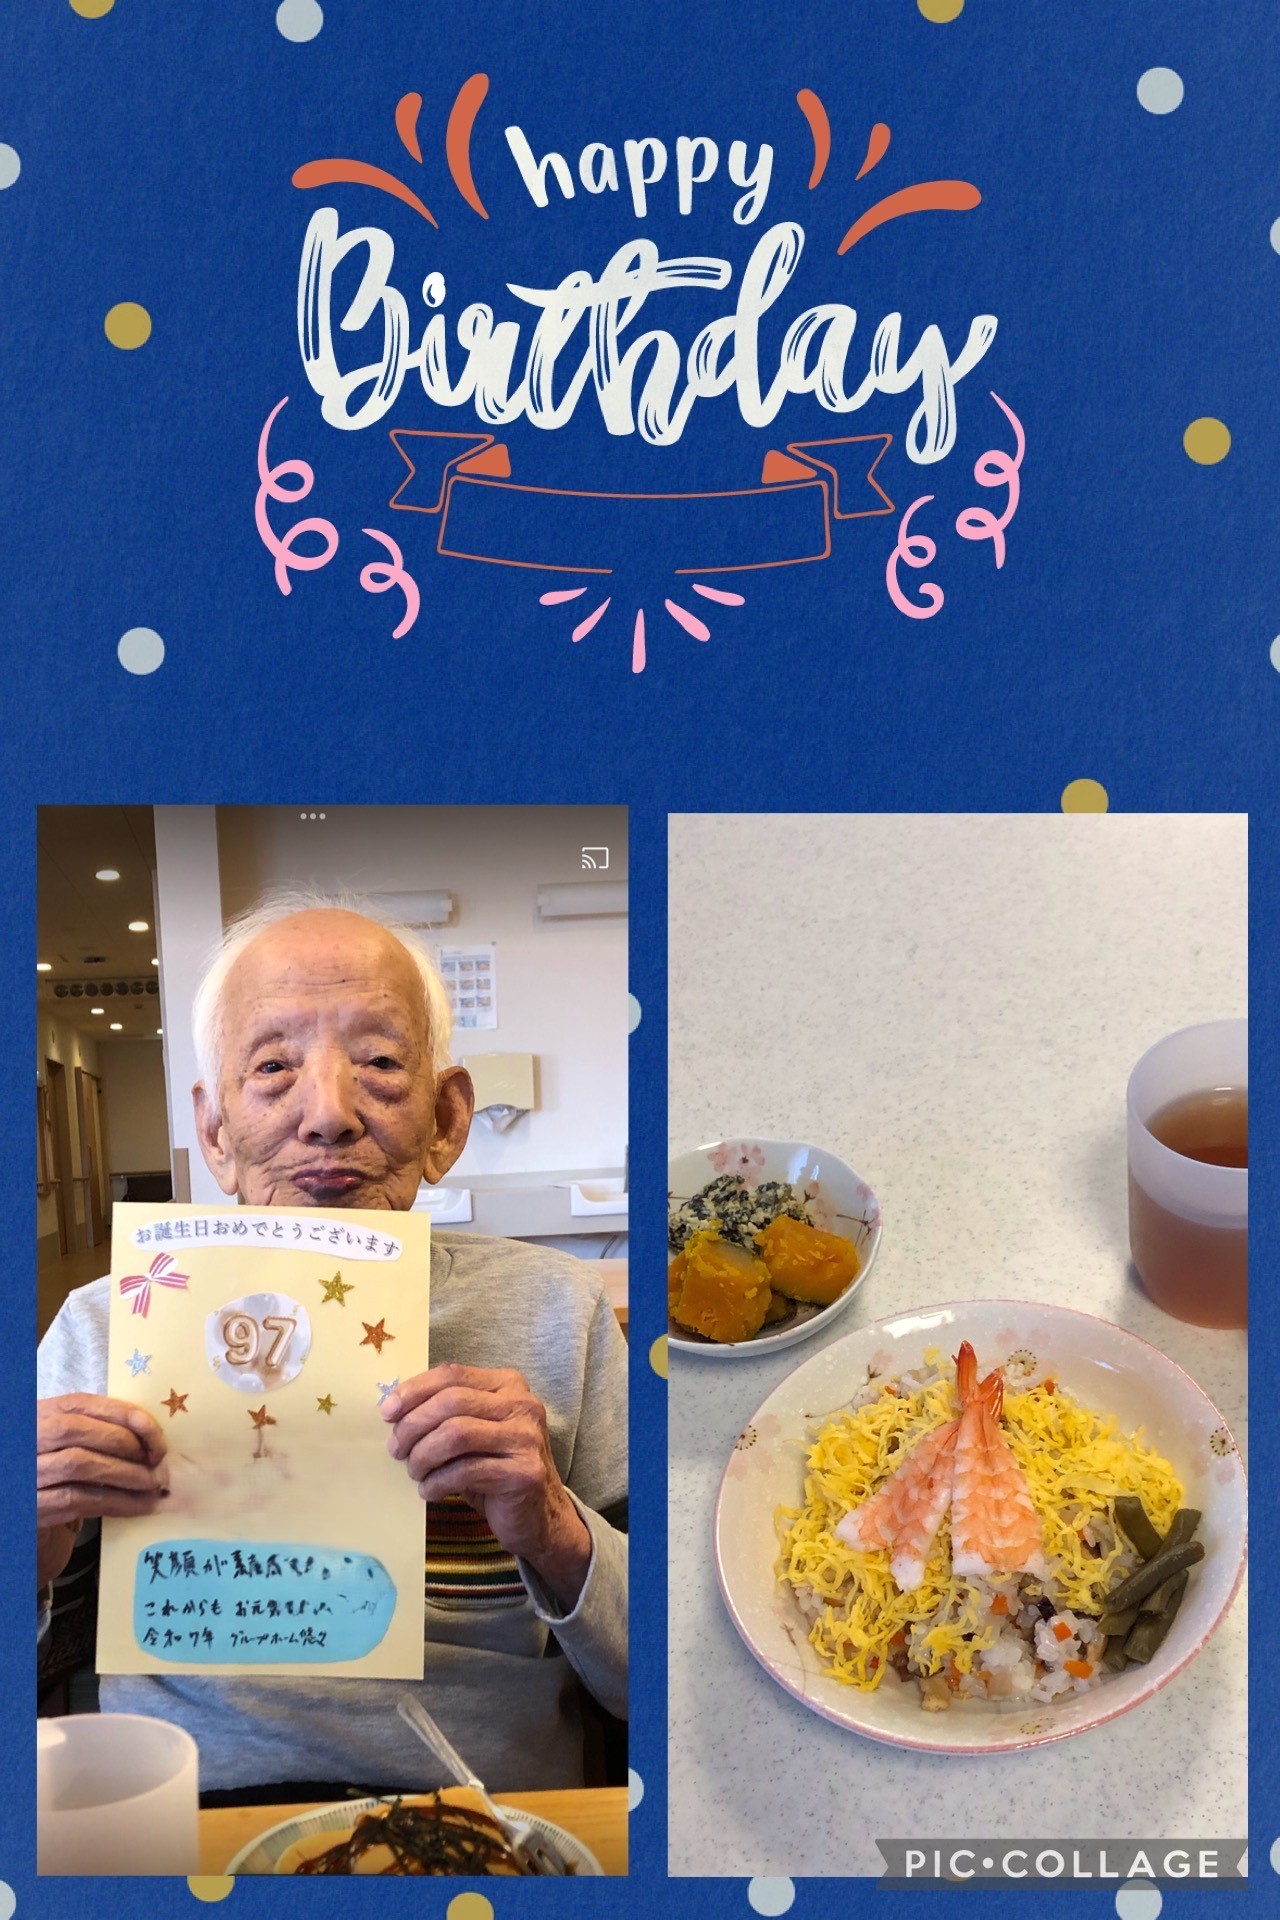 happy
Birthday
お誕生日おめでとうございます
97
笑顔が素敵です
これからも お元気で
令和7年 グループホーム悠々
PIC•COLLAGE